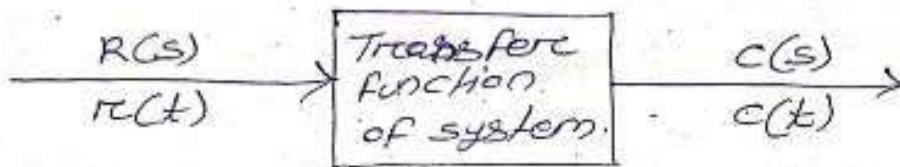 R(s)
r(t)
Transfer
function
of system.
C(s)
c(t)